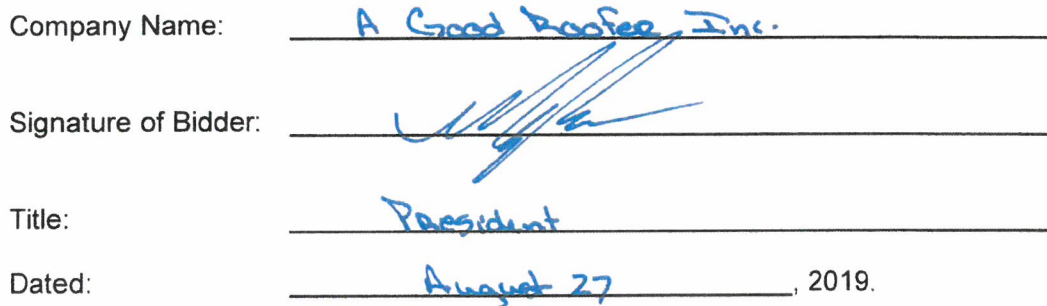 Company Name: A Good Roofer Inc.
Signature of Bidder:
Title: President
Dated: August 27, 2019.